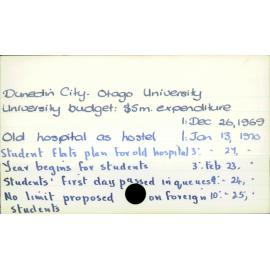 Dunedin City - Otago University
University budget: $5m. expenditure
1: Dec 26, 1969
Old hospital as hostel 1: Jan 13, 1970
Student flats plan for old hospital 3: " 27, "
Year begins for students 3: Feb 23, "
Students' first day passed in queues 9: " 24, "
No limit proposed on foreign 10: " 25, "
students